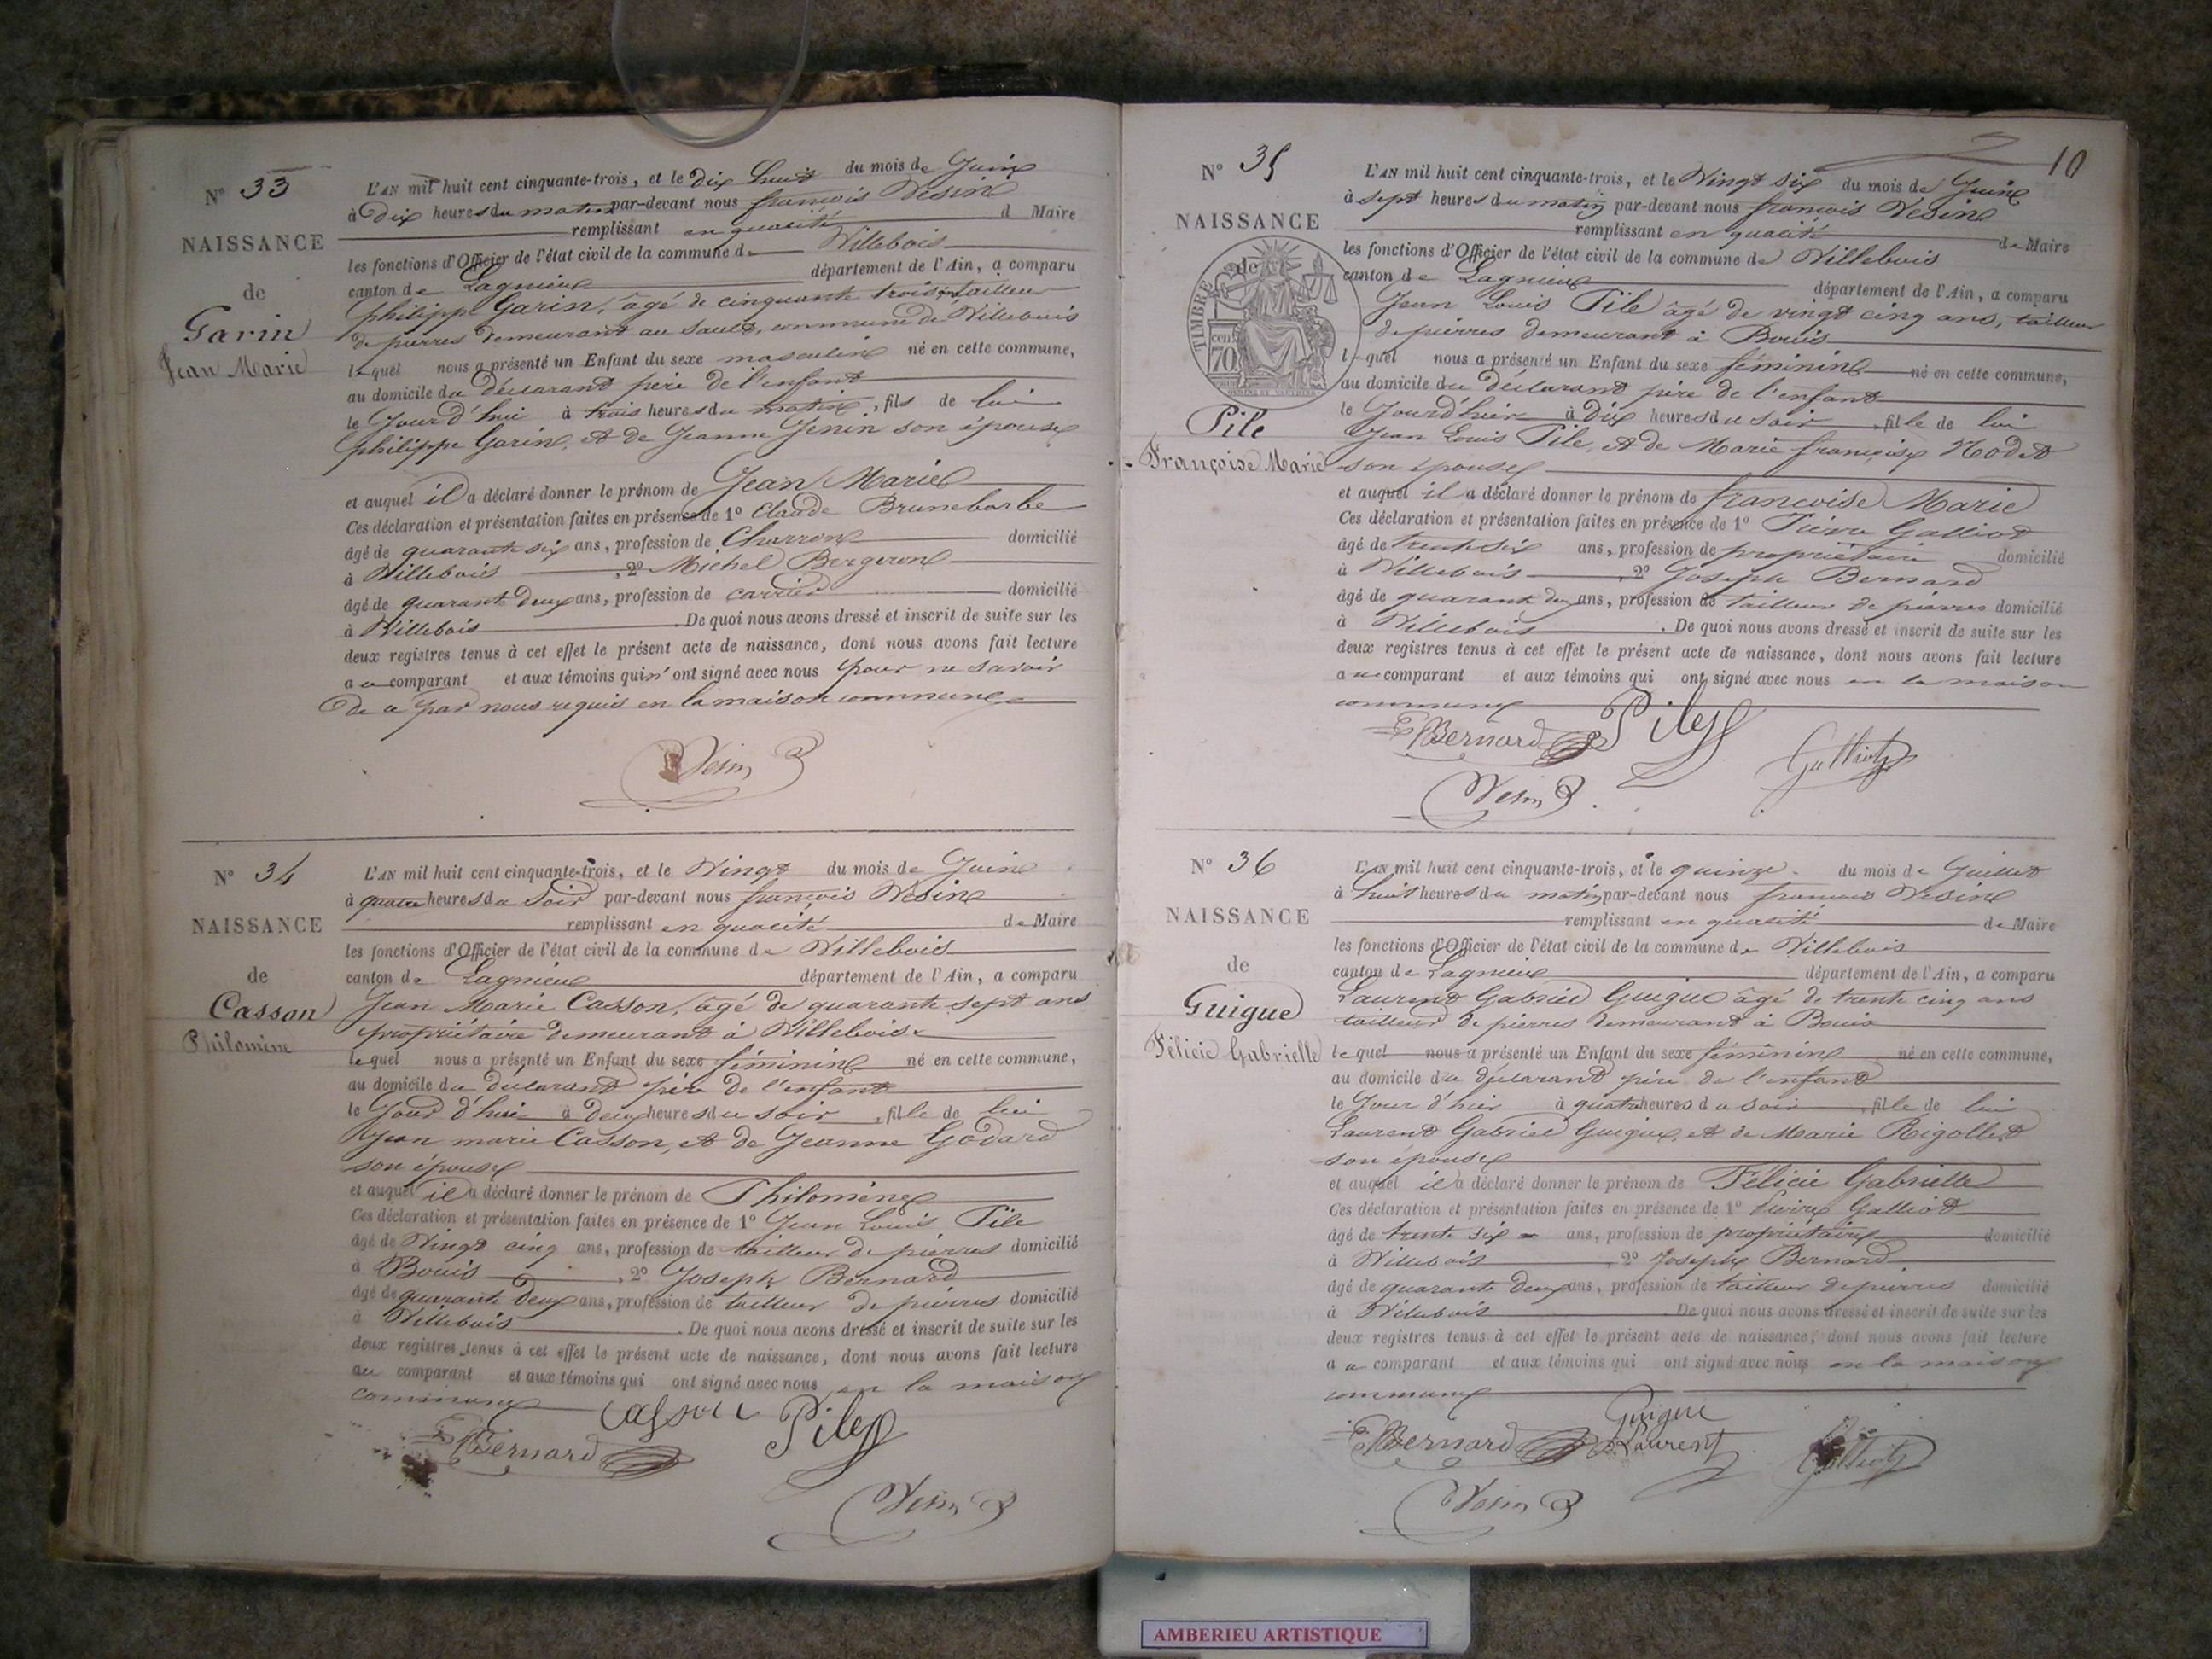 N° 33
NAISSANCE
de
Garin
Jean Marie
L'AN mil huit cent cinquante-trois, et le dix huit du mois de Juin
à dix heures du matin par-devant nous françois Vesin
remplissant en qualité d Maire
les fonctions d'Officier de l'état civil de la commune de Villebois
canton de Lagnieu département de l'Ain, a comparu
philippe Garin, âgé de cinquante trois ans tailleur
de pierres demeurant au Sault, commune de Villebois
lequel nous a présenté un Enfant du sexe masculin né en cette commune,
au domicile du déclarant père de l'enfant
le Jourd'hui à trois heures du matin, fils de lui
philippe Garin, et de Jeanne Jenin son épouse
et auquel il a déclaré donner le prénom de Jean Marie
Ces déclaration et présentation faites en présence de 1° Claude Brunebarbe
âgé de quarante six ans, profession de Charron domicilié
à Villebois, 2° Michel Bergeron
âgé de quarante deux ans, profession de carrier domicilié
à Villebois. De quoi nous avons dressé et inscrit de suite sur les
deux registres tenus à cet effet le présent acte de naissance, dont nous avons fait lecture
au comparant et aux témoins qui n'ont signé avec nous pour ne savoir
de a par nous requis en la maison commune
Vesin
N° 34
NAISSANCE
de
Casson
Philomène
L'AN mil huit cent cinquante-trois, et le Vingt du mois de Juin
à quatre heures du Soir par-devant nous françois Vesin
remplissant en qualité de Maire
les fonctions d'Officier de l'état civil de la commune de Villebois
canton de Lagnieu département de l'Ain, a comparu
Jean Marie Casson, âgé de quarante sept ans
propriétaire demeurant à Villebois
lequel nous a présenté un Enfant du sexe féminin né en cette commune,
au domicile du déclarant père de l'enfant
le Jour d'hui à deux heures du soir, fille de lui
Jean marie Casson, et de Jeanne Godard
son épouse
et auquel il a déclaré donner le prénom de Philomène
Ces déclaration et présentation faites en présence de 1° Jean Louis Pile
âgé de Vingt cinq ans, profession de tailleur de pierres domicilié
à Bouis, 2° Joseph Bernard
âgé de quarante deux ans, profession de tailleur de pierres domicilié
à Villebois. De quoi nous avons dressé et inscrit de suite sur les
deux registres tenus à cet effet le présent acte de naissance, dont nous avons fait lecture
au comparant et aux témoins qui ont signé avec nous en la maison
commune
Casson Pile
Bernard
Vesin
10
N° 35
NAISSANCE
TIMBRE
70 cen
Pile
Françoise Marie
L'AN mil huit cent cinquante-trois, et le Vingt six du mois de Juin
à sept heures du matin par-devant nous françois Vesin
remplissant en qualité de Maire
les fonctions d'Officier de l'état civil de la commune de Villebois
canton de Lagnieu département de l'Ain, a comparu
Jean Louis Pile âgé de vingt cinq ans, tailleur
de pierres demeurant à Bouis
lequel nous a présenté un Enfant du sexe féminin né en cette commune,
au domicile du déclarant père de l'enfant
le Jourd'hier à dix heures du soir, fille de lui
Jean Louis Pile, et de Marie françoise Nodet
son épouse
et auquel il a déclaré donner le prénom de françoise Marie
Ces déclaration et présentation faites en présence de 1° Galliot
âgé de trente six ans, profession de propriétaire domicilié
à Villebois, 2° Joseph Bernard
âgé de quarante deux ans, profession de tailleur de pierres domicilié
à Villebois. De quoi nous avons dressé et inscrit de suite sur les
deux registres tenus à cet effet le présent acte de naissance, dont nous avons fait lecture
au comparant et aux témoins qui ont signé avec nous en la maison
commune
Bernard Pile
Galliot
Vesin
N° 36
NAISSANCE
de
Guigue
Félicie Gabrielle
L'AN mil huit cent cinquante-trois, et le quinze du mois de Juillet
à huit heures du matin par-devant nous françois Vesin
remplissant en qualité de Maire
les fonctions d'Officier de l'état civil de la commune de Villebois
canton de Lagnieu département de l'Ain, a comparu
Laurent Gabriel Guigue âgé de trente cinq ans
tailleur de pierres demeurant à Bouis
lequel nous a présenté un Enfant du sexe féminin né en cette commune,
au domicile du déclarant père de l'enfant
le Jour d'hier à quatre heures du soir, fille de lui
Laurent Gabriel Guigue, et de Marie Rigollet
son épouse
et auquel il a déclaré donner le prénom de Félicie Gabrielle
Ces déclaration et présentation faites en présence de 1° Galliot
âgé de trente six ans, profession de propriétaire domicilié
à Villebois, 2° Joseph Bernard
âgé de quarante deux ans, profession de tailleur de pierres domicilié
à Villebois. De quoi nous avons dressé et inscrit de suite sur les
deux registres tenus à cet effet le présent acte de naissance, dont nous avons fait lecture
au comparant et aux témoins qui ont signé avec nous en la maison
commune
Guigue
Bernard Laurent Galliot
Vesin
AMBERIEU ARTISTIQUE